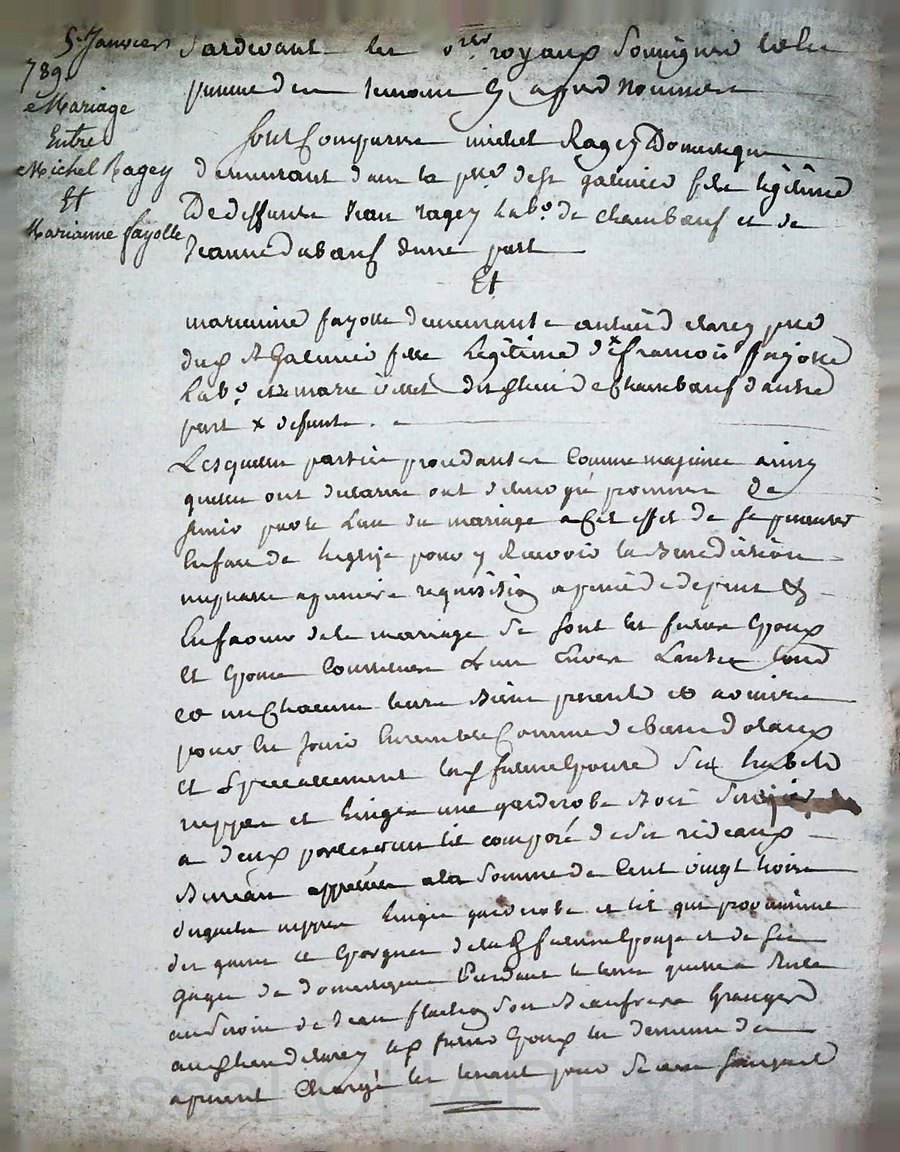 5e Janvier
789
Mariage
Entre
Michel Ragey
Et
Marianne fayolle
Pardevant les royaux soussignés
présence des témoins cy après nommés
Sont Comparus michel Ragey Domestique
demeurant dans la psse de st galmier fils légitime
De deffunts Jean ragey lab.r de chambœuf et de
Jeanne dubœuf d'une part
Et
marianne fayolle demeurante psse
dud st Galmier fille Légitime de x françois ffayolle
Lab.r et de marie dud lieu de chambœuf d'autre
part x defunt.
Lesquelles parties procédantes comme majeures ainsy
quelles ont déclaré ont promis de
s'unir par le lien du mariage a cet effet de se présenter
En face de l'eglise pour y recevoir la Bénédiction
nuptiale a première réquisition a peine de dépens &
En faveur de ce mariage se sont les futurs époux
Et épouse constitués l'un envers l'autre tous
et un chacuns leurs Biens présents et avenirs
pour en jouir ensemble comme de biens dotaux
et spécialement lad future épouse ses habits
nippes et linges une garderobe Bois
a deux portes un lit composé de ses rideaux
appréciés a la somme de Cent vingt trois
lesquels nippes linges garderobe et lit que proviennent
des gains et Epargnes de lad future Epouse et de ses
gages de domestique Pendant le tems quelle a
au service de Jean son Beaufrère Granger
aud lieu led futur Epoux en demeure dès
a présent Chargé les tenant pour
Pascal CHAREYRON